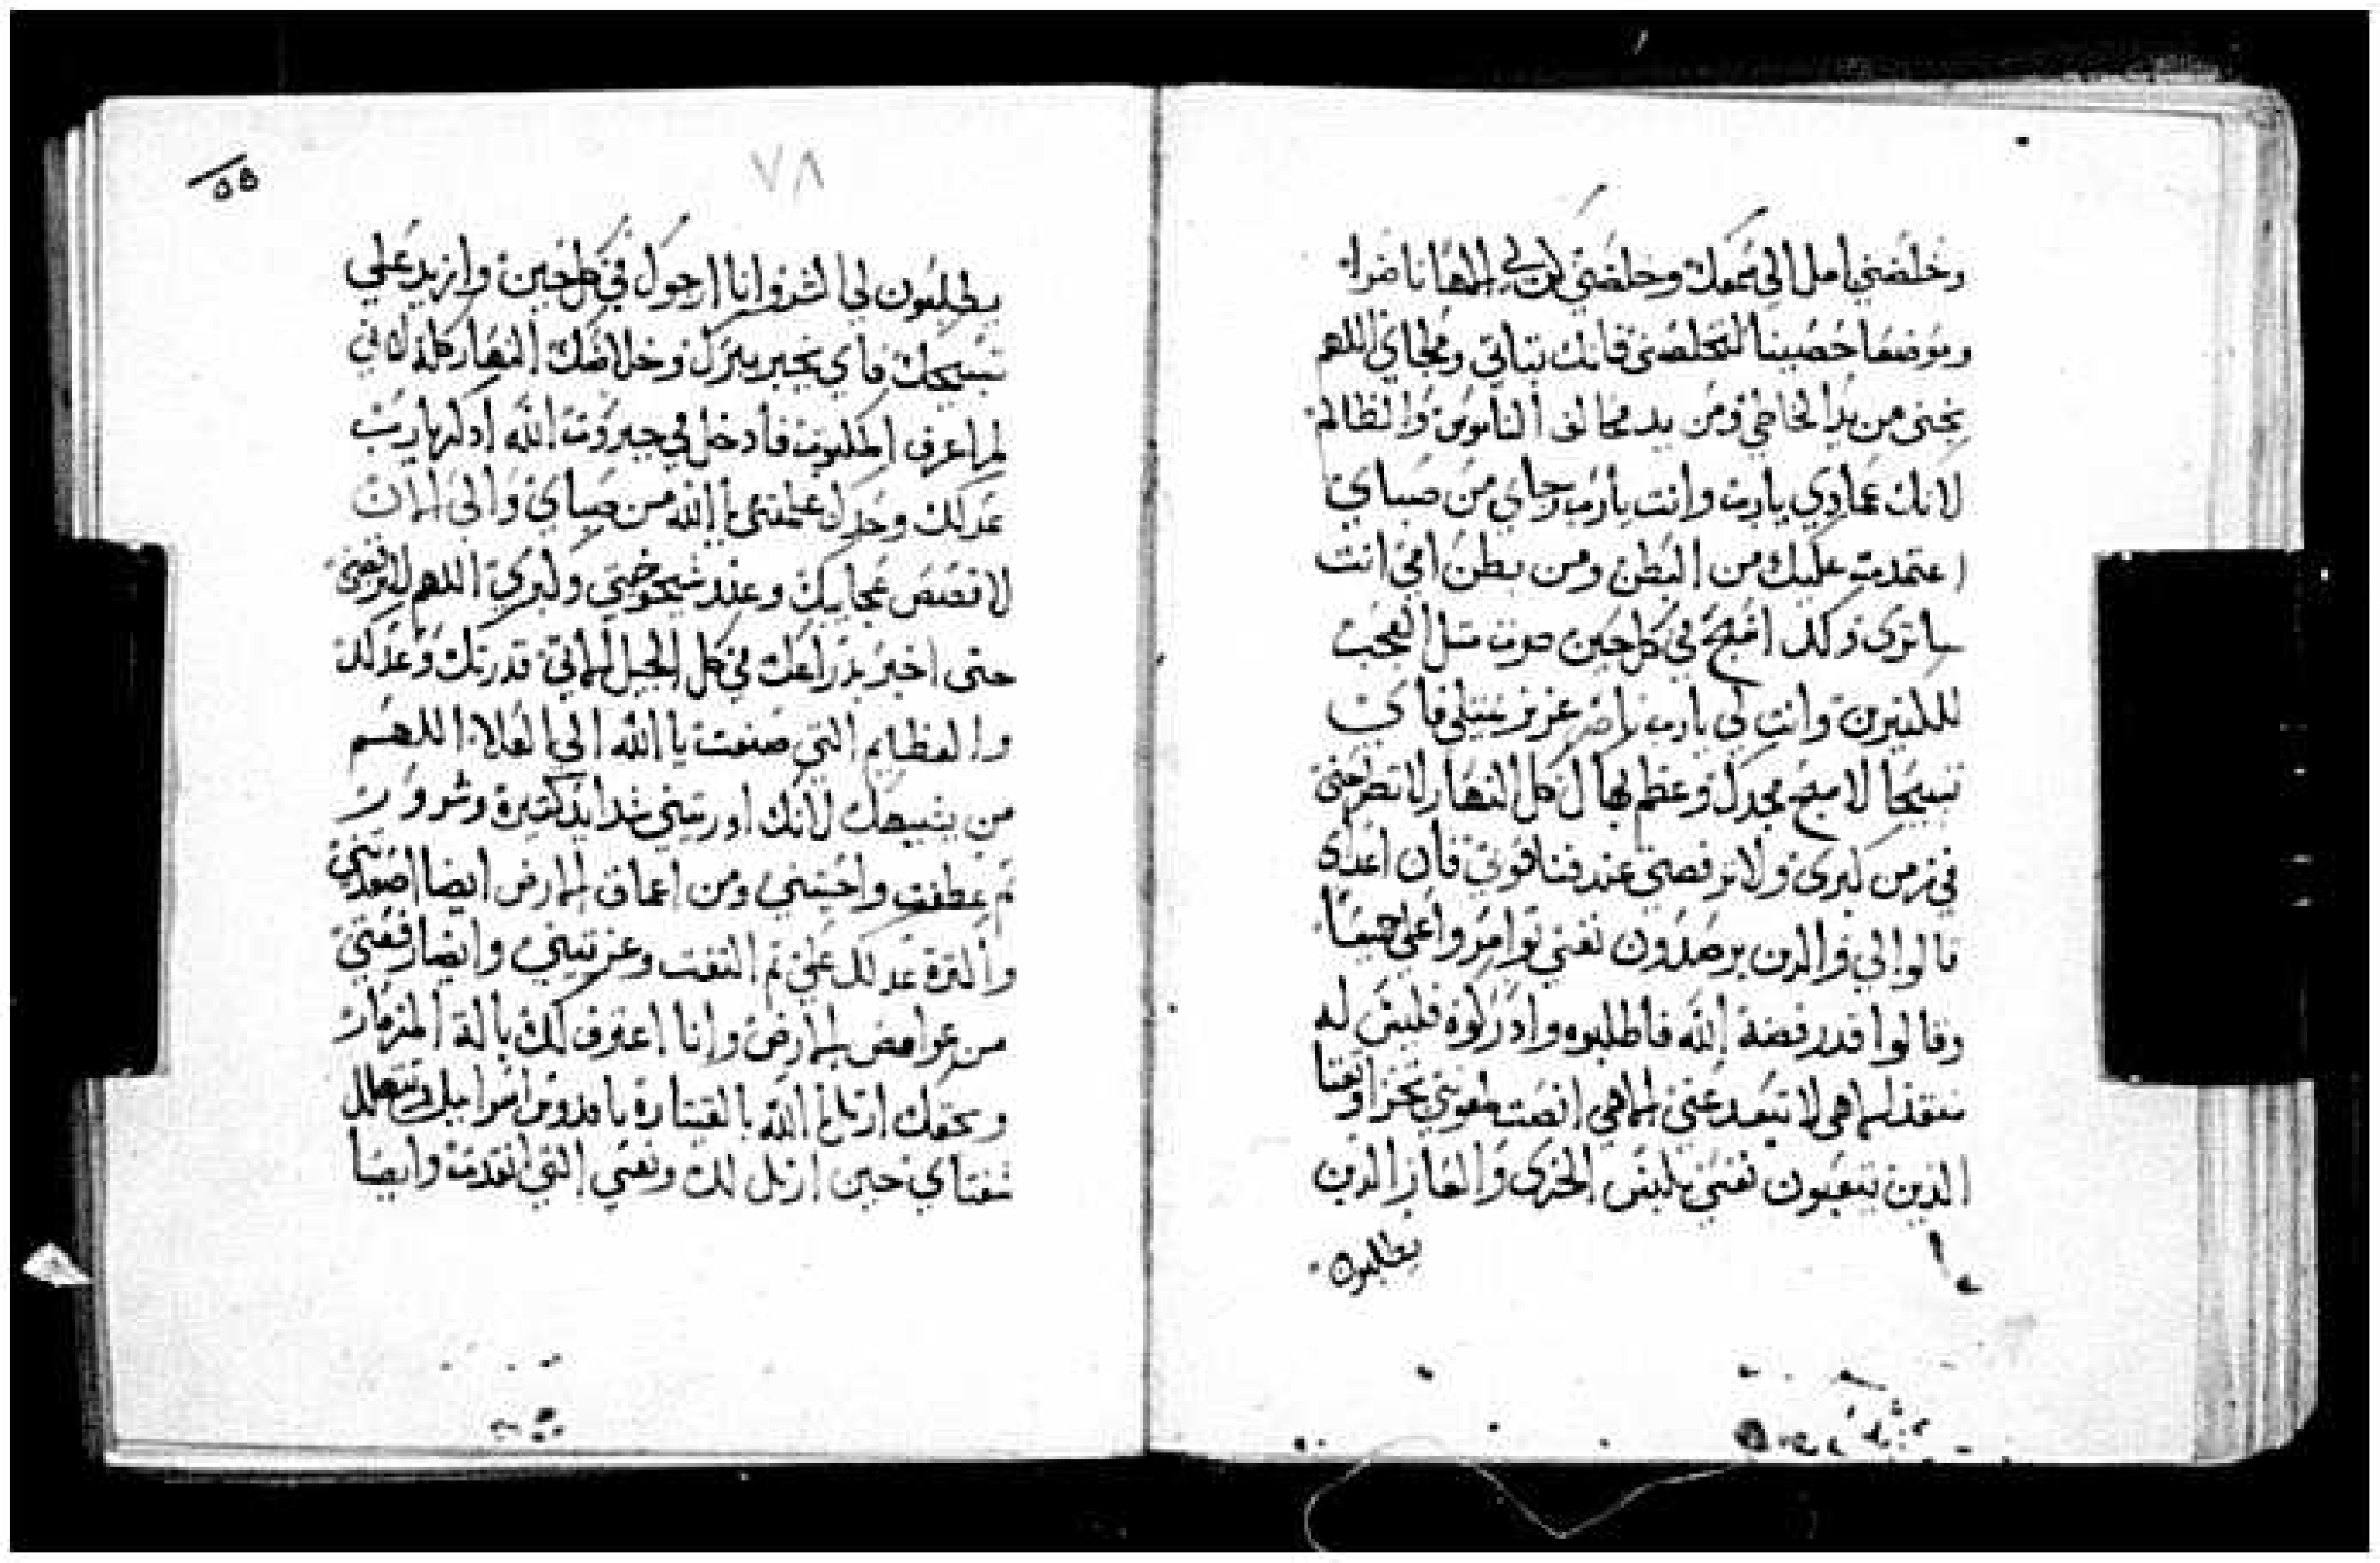 وخلصني امل الي سمعك وخلصني كن لي الها ناصرا
وموضعا حصينا لتخلصني فانك ثباتي وملجاي اللهم
نجني من يد الخاطي ومن يد مخالف الناموس والظالم
لانك عمادي يارب وانت يارب رجاي من صباي
اعتمدت عليك من البطن ومن بطن امي انت
ساتري ولك اسبح في كل حين صرت مثل العجب
للكثيرين وانت لي يارب ناصر عزيز يمتلي فاي
تسبيحا لاسبح مجدك وعظم بهاك كل النهار لا تطرحني
في زمن كبري ولا ترفضني عند فنا قوتي فان اعداي
قالوا لي والذين يرصدون نفسي توامروا علي جميعا
وقالوا قد رفضه الله فاطلبوه وادركوه فليس له
منقذ الهي لا تبعد عني الهي انصت لمعونتي تخزا وتفنا
الذين يتعبون نفسي يلبس الخزي والعار الذين
يطلبون
٧٨
٥٥
يطلبون لي الشر وانا ارجوك في كل حين وازيد علي
تسبيحك فاي يخبر ببرك وخلاصك النهار كله لاني
لم اعرف المكتوب فادخل في جبروت الله اذكر يارب
عدلك وحدك علمتني يا الله من صباي والي الان
لاقصص عجايبك وعند شيخوختي وكبري اللهم لا ترفضني
حتى اخبر بذراعك في كل الجيل الاتي قدرتك وعدلك
والعظايم التي صنعت يا الله الي العلا اللهم
من يشبهك لانك اوريتني شدايد كثيرة وشرور
ثم عطفت واحييتني ومن اعماق الارض ايضا اصعدتني
واكثرة عدلك علي ثم التفت وعزيتني وايضا رفعتني
من غوامض الارض وانا اعترف لك بالة المزمار
وبحقك ارتل يا الله بالقيتارة يا قدوس اسراييل وتتهلل
شفتاي حين ارتل لك ونفسي التي انقذت وايضا